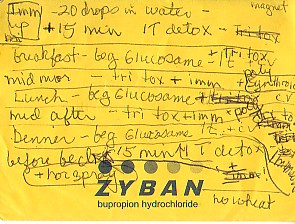 Imm - 20 drops in water - magnet
up +15 min 1T detox - tri tox
breakfast - beg Glucosame - 1t tri tox
mid mor - tri tox + imm
Lunch - beg Glucosame + cv
mid after - tri tox + imm
Denner - beg Glucosame 1t + cv
before bed - 15 min 1T detox
+ horspres + imm
ZYBAN
bupropion hydrochloride
no wheat